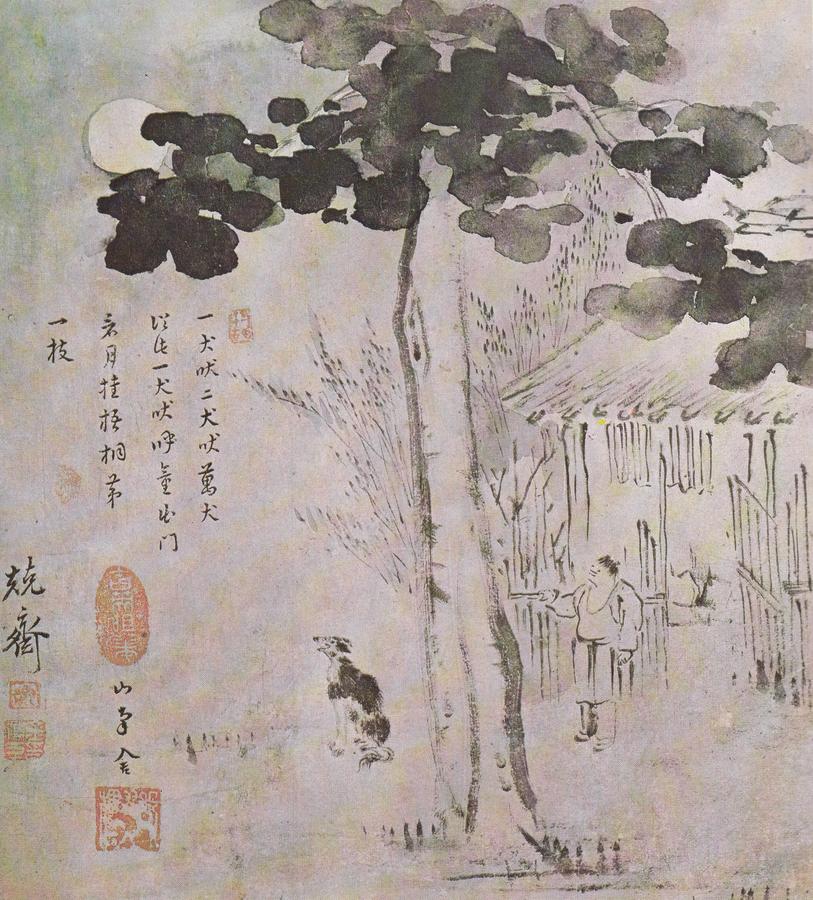 一犬吠二犬吠萬犬
從此一犬吠呼童出門
看月挂梧桐第
一枝
兢齋